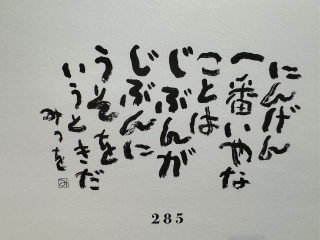 にんげん
一番いやな
ことは
じぶんが
じぶんに
うそを
いうときだ
みつを
285